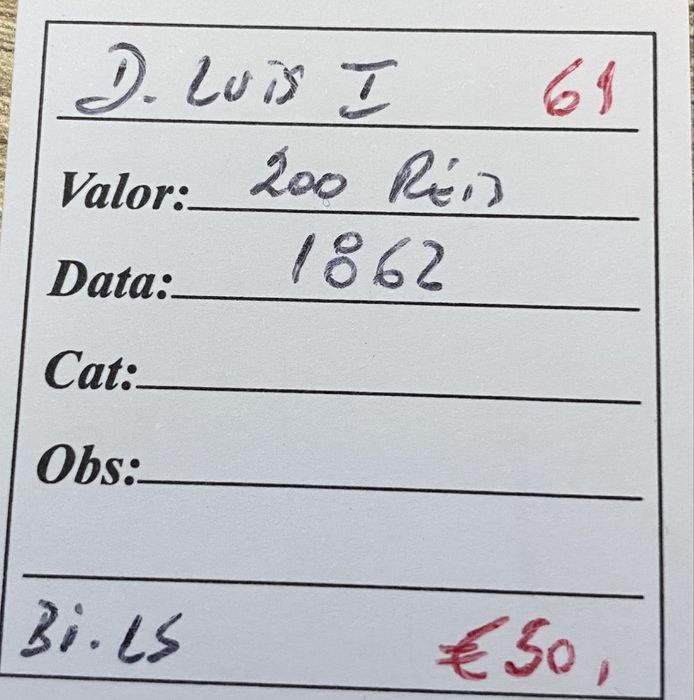 D. Luis I 61
Valor: 200 Réis
Data: 1862
Cat:
Obs:
Bi. LS €50,